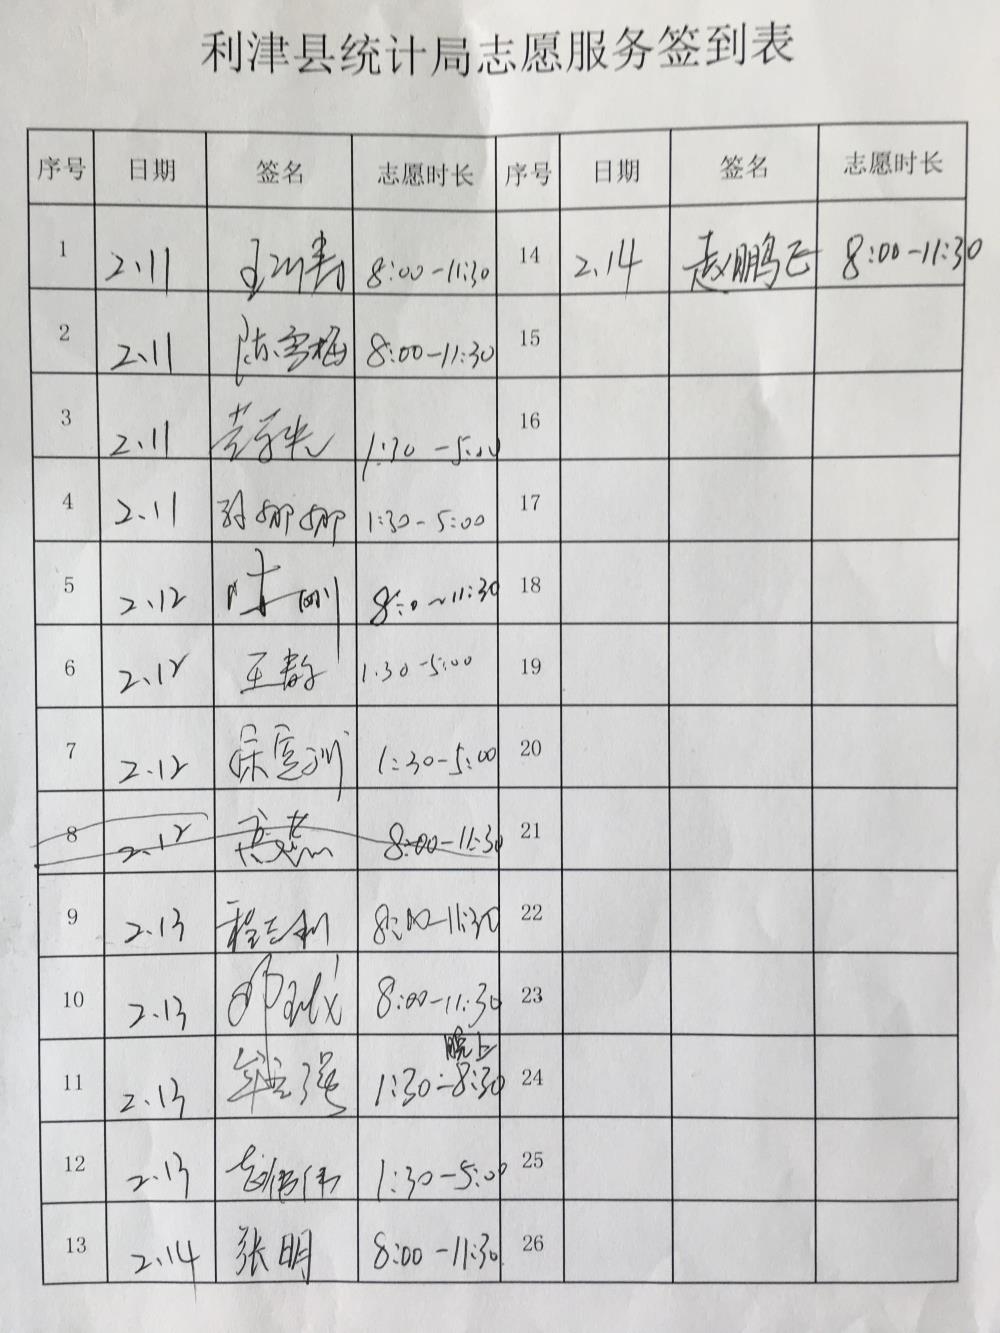 利津县统计局志愿服务签到表
序号 日期 签名 志愿时长 序号 日期 签名 志愿时长
1 2.11 8:00-11:30 14 2.14 赵鹏飞 8:00-11:30
2 2.11 陈雪梅 8:00-11:30 15
3 2.11 1:30-5:00 16
4 2.11 孙娜娜 1:30-5:00 17
5 2.12 8:00~11:30 18
6 2.12 王静 1:30-5:00 19
7 2.12 1:30-5:00 20
8 2.12 8:00-11:30 21
9 2.13 程志利 8:00-11:30 22
10 2.13 8:00-11:30 23
晚上
11 2.13 1:30-8:30 24
12 2.13 赵伟伟 1:30-5:00 25
13 2.14 张明 8:00-11:30 26